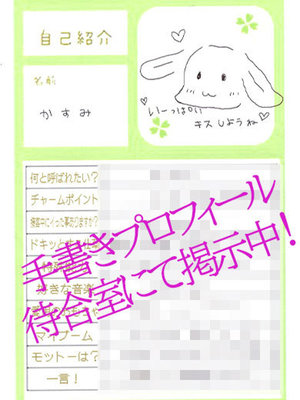 自己紹介
名前
かすみ
いーっぱい
キスしようね
何と呼ばれたい?
チャームポイント
接客中にイった事ありますか?
ドキッと
好きな音楽
マイブーム
モットーは?
一言!
手書きプロフィール
待合室にて掲示中!